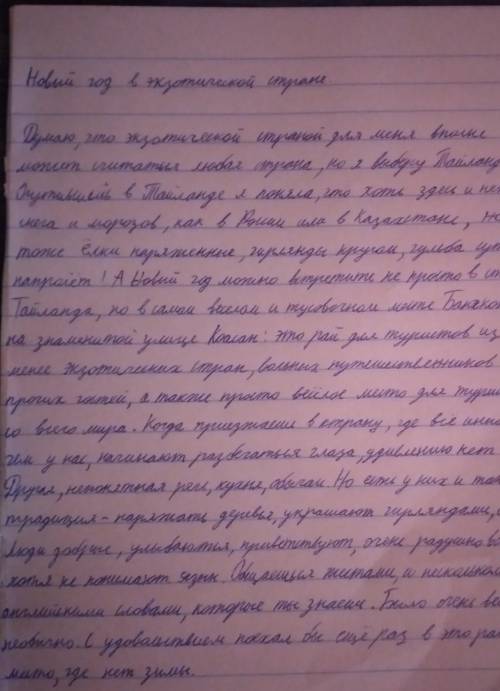 Новый год в экзотической стране.
Думаю, что экзотической страной для меня вполне
может считаться любая страна, но я выберу Тайланд
Очутившись в Тайланде я поняла, что хоть здесь и нет
снега и морозов, как в России или в Казахстане, но
тоже ёлки наряженные, гирлянды кругом, гульба
А Новый год можно встретить не просто в
Тайланда, но в самом весёлом и тусовочном месте
на знаменитой улице Каосан: это рай для туристов из
менее экзотических стран, вольных путешественников
прочих гостей, а также просто весёлое место для
со всего мира. Когда приезжаешь в страну, где всё
чем у нас, начинают разбегаться глаза, удивлению нет
Другая, непонятная речь, кухня, обычаи. Но есть у них и
традиция - наряжать деревья, украшают гирляндами,
Люди добрые, улыбаются, приветствуют, очень радушно
хотя не понимают язык. Общаешься жестами, и
английскими словами, которые ты знаешь. Было очень
необычно. С удовольствием поехал бы ещё раз в это
место, где нет зимы.